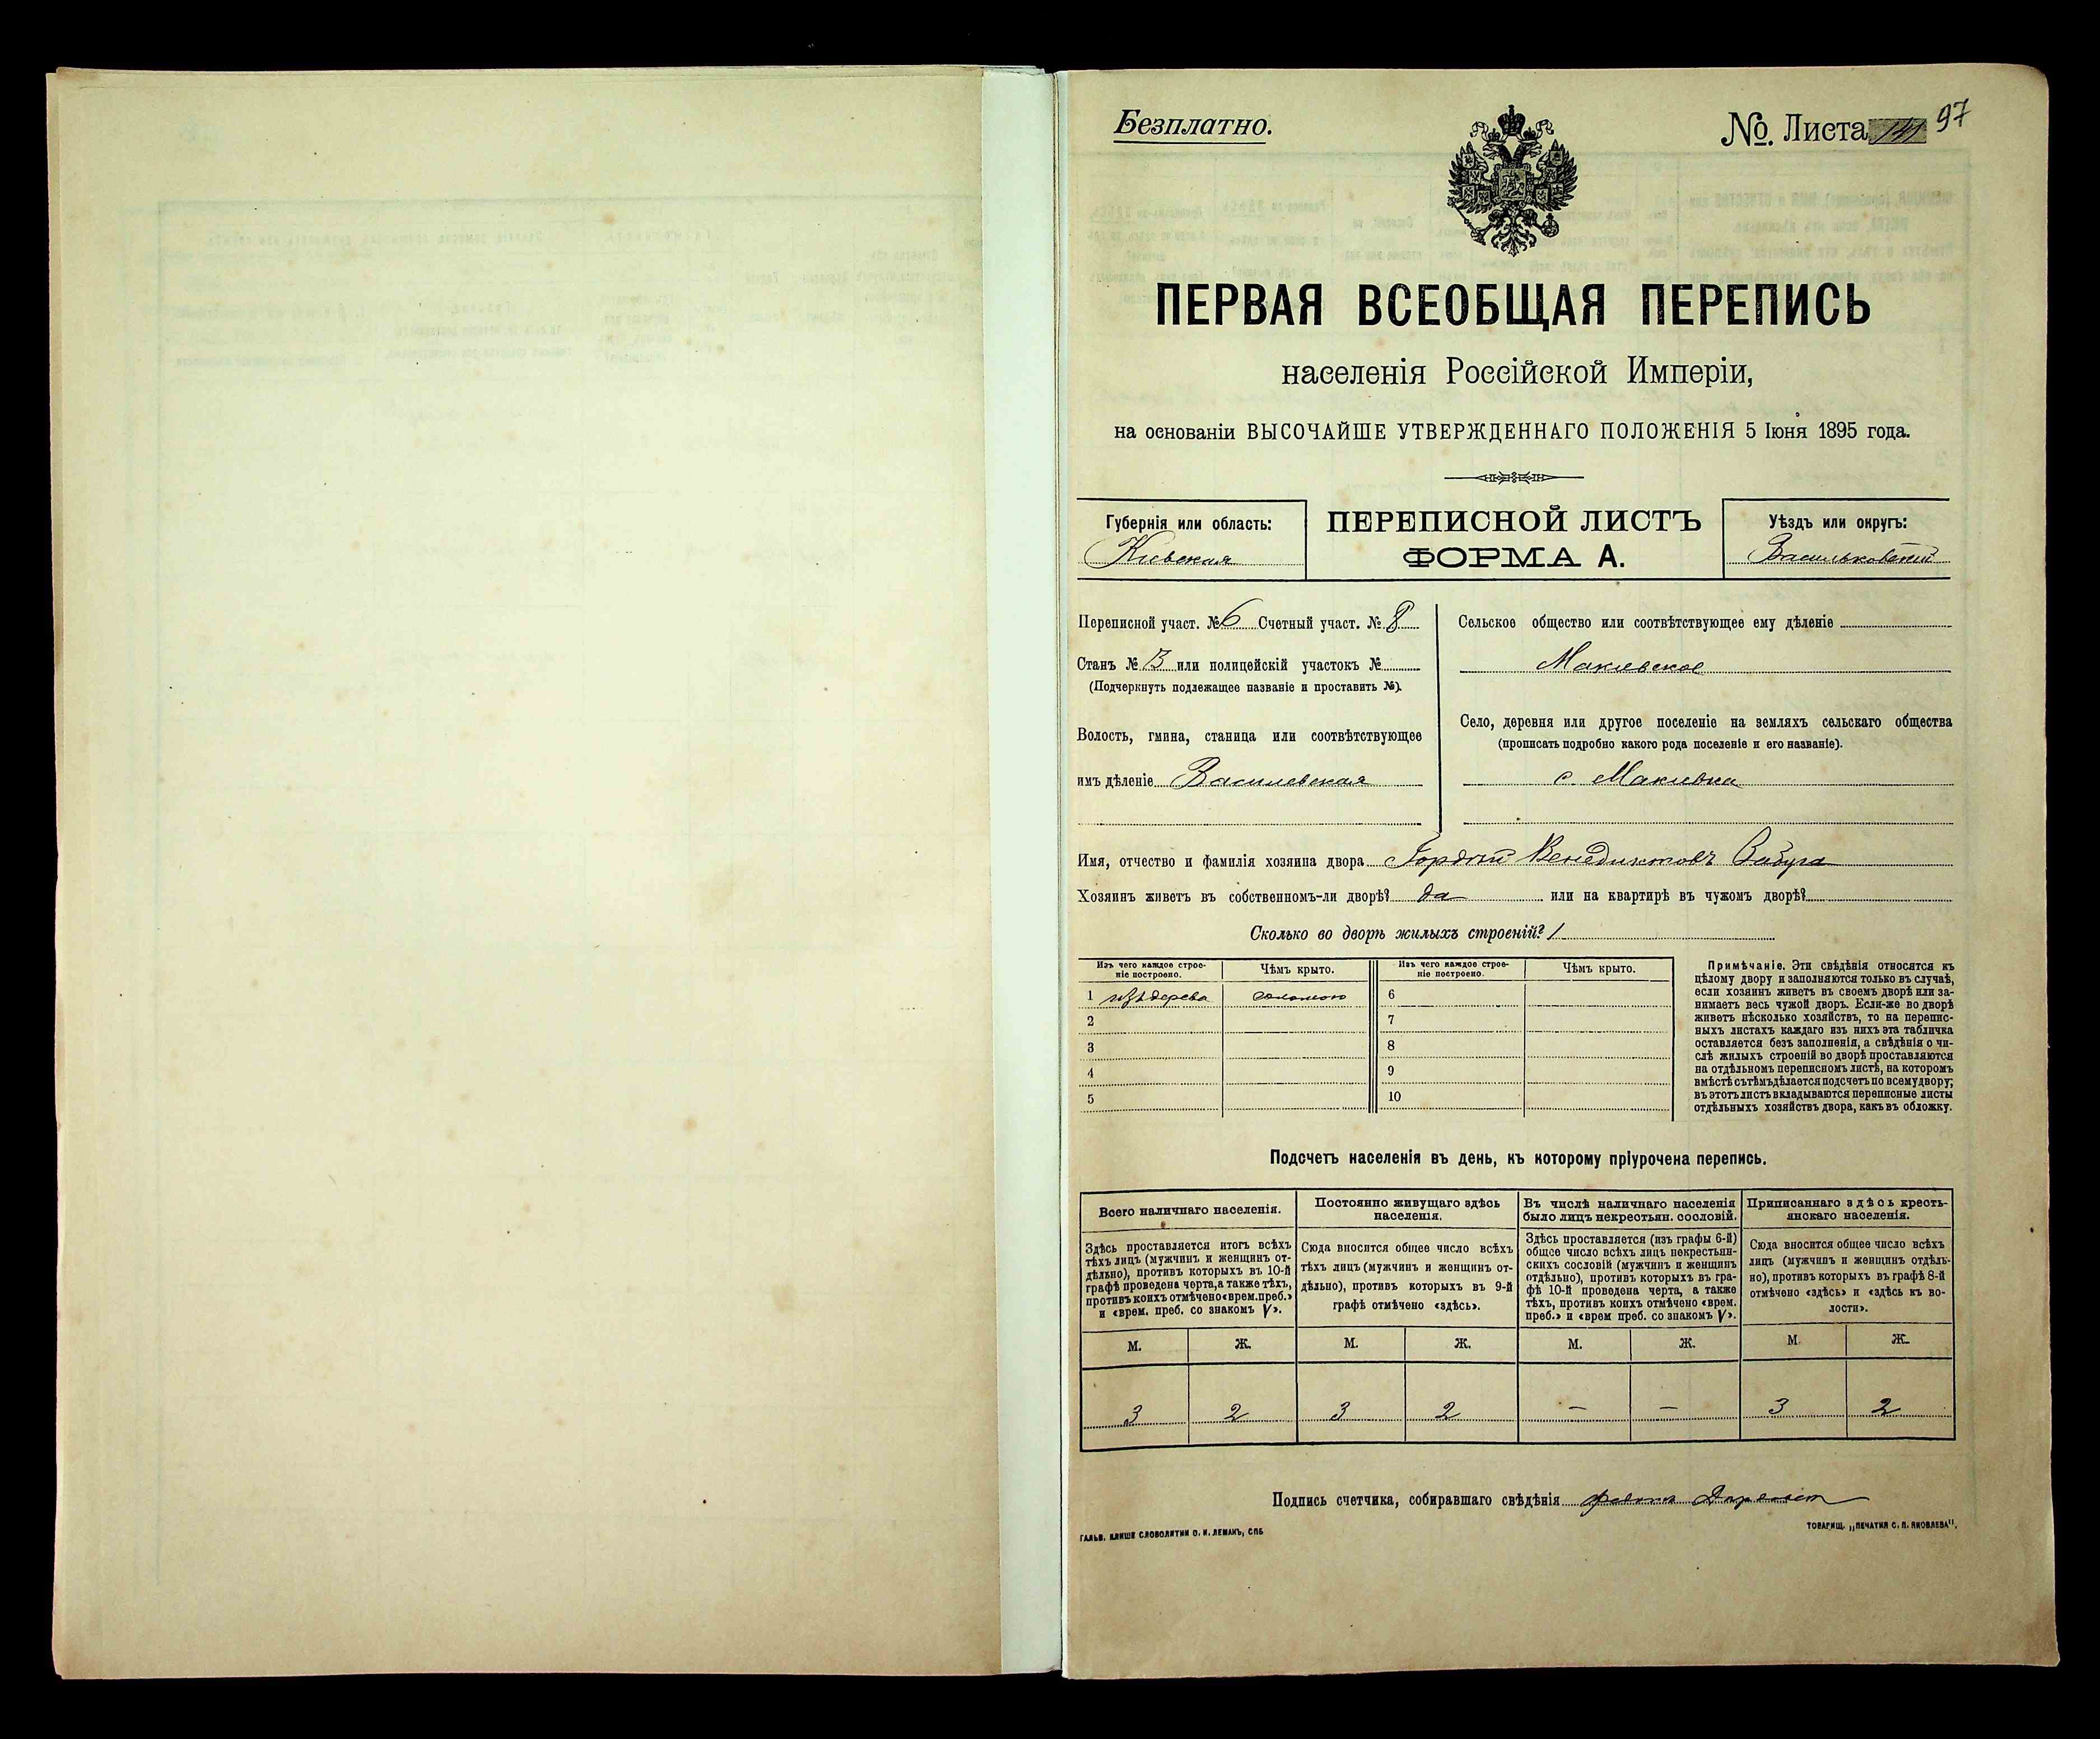 Безплатно.
№. Листа 97
ПЕРВАЯ ВСЕОБЩАЯ ПЕРЕПИСЬ
населенія Россійской Имперіи,
на основаніи ВЫСОЧАЙШЕ УТВЕРЖДЕННАГО ПОЛОЖЕНІЯ 5 Іюня 1895 года.
Губернія или область:
Кіевская
ПЕРЕПИСНОЙ ЛИСТЪ
ФОРМА А.
Уѣздъ или округъ:
Васильковскій
Переписной участ. № 6 Счетный участ. № 8
Станъ № 3 или полицейскій участокъ №
(Подчеркнуть подлежащее названіе и проставить №).
Волость, гмина, станица или соотвѣтствующее
имъ дѣленіе Василевская
Сельское общество или соотвѣтствующее ему дѣленіе
Макіевское
Село, деревня или другое поселеніе на земляхъ сельскаго общества
(прописать подробно какого рода поселеніе и его названіе).
с Макіевка
Имя, отчество и фамилія хозяина двора Гордій Венедиктовъ
Хозяинъ живетъ въ собственномъ-ли дворѣ? да или на квартирѣ въ чужомъ дворѣ?
Сколько во дворѣ жилыхъ строеній? 1
Изъ чего каждое строе-
ніе построено.
Чѣмъ крыто.
Изъ чего каждое строе-
ніе построено.
Чѣмъ крыто.
1 изъ дерева соломою 6
2 7
3 8
4 9
5 10
Примѣчаніе. Эти свѣдѣнія относятся къ
цѣлому двору и заполняются только въ случаѣ,
если хозяинъ живетъ въ своемъ дворѣ или за-
нимаетъ весь чужой дворъ. Если-же во дворѣ
живетъ нѣсколько хозяйствъ, то на перепис-
ныхъ листахъ каждаго изъ нихъ эта табличка
оставляется безъ заполненія, а свѣдѣнія о чи-
слѣ жилыхъ строеній во дворѣ проставляются
на отдѣльномъ переписномъ листѣ, на которомъ
вмѣстѣ съ тѣмъ дѣлается подсчетъ по всему двору;
въ этотъ листъ вкладываются переписные листы
отдѣльныхъ хозяйствъ двора, какъ въ обложку.
Подсчетъ населенія въ день, къ которому пріурочена перепись.
Всего наличнаго населенія.
Здѣсь проставляется итогъ всѣхъ
тѣхъ лицъ (мужчинъ и женщинъ от-
дѣльно), противъ которыхъ въ 10-й
графѣ проведена черта, а также тѣхъ,
противъ коихъ отмѣчено «врем. преб.»
и «врем. преб. со знакомъ V».
Постоянно живущаго здѣсь
населенія.
Сюда вносится общее число всѣхъ
тѣхъ лицъ (мужчинъ и женщинъ от-
дѣльно), противъ которыхъ въ 9-й
графѣ отмѣчено «здѣсь».
Въ числѣ наличнаго населенія
было лицъ некрестьян. сословій.
Здѣсь проставляется (изъ графы 6-й)
общее число всѣхъ лицъ некрестьян-
скихъ сословій (мужчинъ и женщинъ
отдѣльно), противъ которыхъ въ гра-
фѣ 10-й проведена черта, а также
тѣхъ, противъ коихъ отмѣчено «врем.
преб.» и «врем преб. со знакомъ V».
Приписаннаго здѣсь кресть-
янскаго населенія.
Сюда вносится общее число всѣхъ
лицъ (мужчинъ и женщинъ отдѣль-
но), противъ которыхъ въ графѣ 8-й
отмѣчено «здѣсь» и «здѣсь къ во-
лости».
М. Ж. М. Ж. М. Ж. М. Ж.
3 2 3 2 — — 3 2
Подпись счетчика, собиравшаго свѣдѣнія
ГАЛЬВ. КЛИШЕ СЛОВОЛИТНИ О. И. ЛЕМАНЪ, СПБ
ТОВАРИЩ. „ПЕЧАТНЯ С. П. ЯКОВЛЕВА".